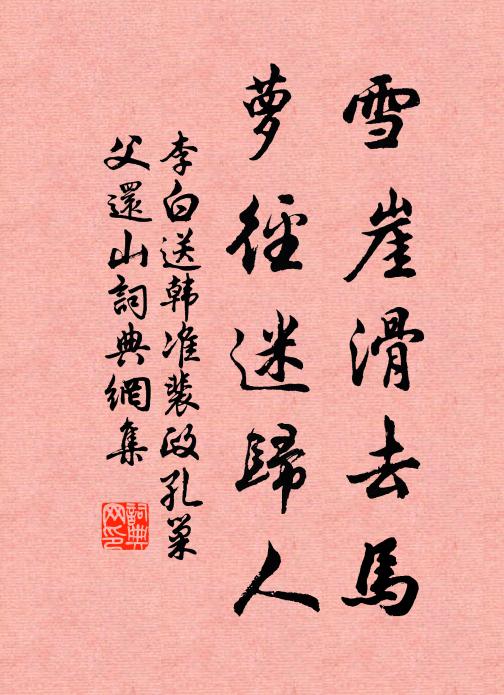 雪崖滑去馬
萝徑迷歸人
李白送韩准裴政孔巢
父還山詞典網集
詞典
网印